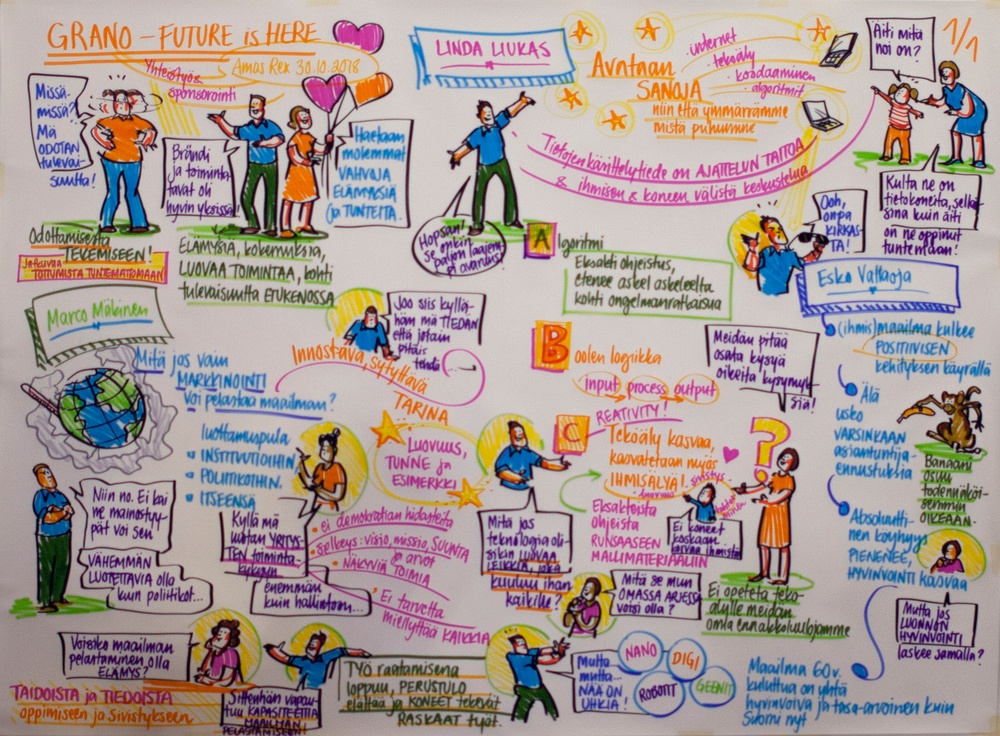 GRANO - FUTURE is HERE
Yhteistyö &
sponsorointi
Amos Rex 30.10.2018
Missä-
missä?
Mä
ODOTAN
tulevai-
suutta!
Odottamisesta
TEKEMISEEN!
TOTTUMISTA TUNTEMATTOMAAN
Brändi
ja toiminta-
tavat oli
hyvin yksissä!
Haetaan
molemmat
VAHVOJA
ELÄMYKSIÄ
ja TUNTEITA.
ELÄMYSIÄ, kokemuksia,
LUOVAA TOIMINTAA, kohti
tulevaisuutta ETUKENOSSA
LINDA LIUKAS
Avataan
SANOJA
niin että ymmärrämme
mistä puhumme
internet
tekoäly
koodaaminen
algoritmit
Tietojenkäsittelytiede on AJATTELUN TAITOA
& ihmisen & koneen välistä keskustelua
Hopsan!
se onkin
paljon laajem-
pi avaruus!
Äiti mitä
noi on?
1/1
Kulta ne on
tietokoneita, sella-
sina kuin äiti
on ne oppinut
tuntemaan!
A lgoritmi
Eksakti ohjeistus,
etenee askel askeleelta
kohti ongelmanratkaisua
B oolen logiikka
input process output
C REATIVITY!
Tekoäly kasvaa,
kasvatetaan myös
IHMISÄLYÄ!
sivistys
luovuus
Eksakteista
ohjeista
RUNSAASEEN
MALLIMATERIAALIIN
Meidän pitää
osata kysyä
oikeita kysymyk-
siä!
?
Ei koneet
koskaan
korvaa ihmistä
Ei opeteta teko-
älylle meidän
omia ennakkoluulojamme
Mitä se mun
OMASSA ARJESSA
voisi olla?
Mitä jos
teknologia oli-
sikin LUOVAA
LEIKKIÄ, joka
kuuluu ihan
kaikille?
Ooh,
onpa
KIRKAS-
TA!
Esko Valtaoja
(ihmis)maailma kulkee
POSITIIVISEN
kehityksen käyrällä
Älä
usko
VARSINKAAN
asiantuntija-
ennustuksia
Banaani
osuu
todennäköi-
semmin
OIKEAAN.
Absoluutti-
nen köyhyys
PIENENEE,
HYVINVOINTI KASVAA
Mutta jos
LUONNON
HYVINVOINTI
laskee samalla?
Maailma 60v.
kuluttua on yhtä
hyvinvoiva ja tasa-arvoinen kuin
Suomi nyt
Marco Mäkinen
Mitä jos vain
MARKKINOINTI
voi pelastaa maailman?
Joo siis kyllä-
hän mä TIEDÄN
että jotain
pitäis
tehdä...
Innostava, sytyttävä
TARINA
LUOVUUS,
TUNNE ja
ESIMERKKI
luottamuspula
• INSTITUUTIOIHIN,
• POLIITIKOIHIN,
• ITSEENSÄ
Niin no. Ei kai
ne mainostyy-
pät voi sen
VÄHEMMÄN
LUOTETTAVIA olla
kuin poliitikot...
Kyllä mä
luotan YRITYS-
TEN toiminta-
kykyyn
enemmän
kuin hallintoon...
• Ei demokratian hidasteita
• Selkeys: visio, missio, SUUNTA
& arvot
• NÄKYVIÄ TOIMIA
• Ei tarvetta
miellyttää KAIKKIA
Voisiko maailman
pelastaminen olla
ELÄMYS?
TAIDOISTA ja TIEDOISTA
oppimiseen ja sivistykseen
Sittenhän vapau-
tuu KAPASITEETTIA
MAAILMAN
PELASTAMISEEN
TYÖ raatamisena
loppuu, PERUSTULO
elättää ja KONEET tekevät
RASKAAT työt.
Mutta
mutta...
NÄÄ ON
UHKIA!
NANO
DIGI
ROBOTIT
GEENIT